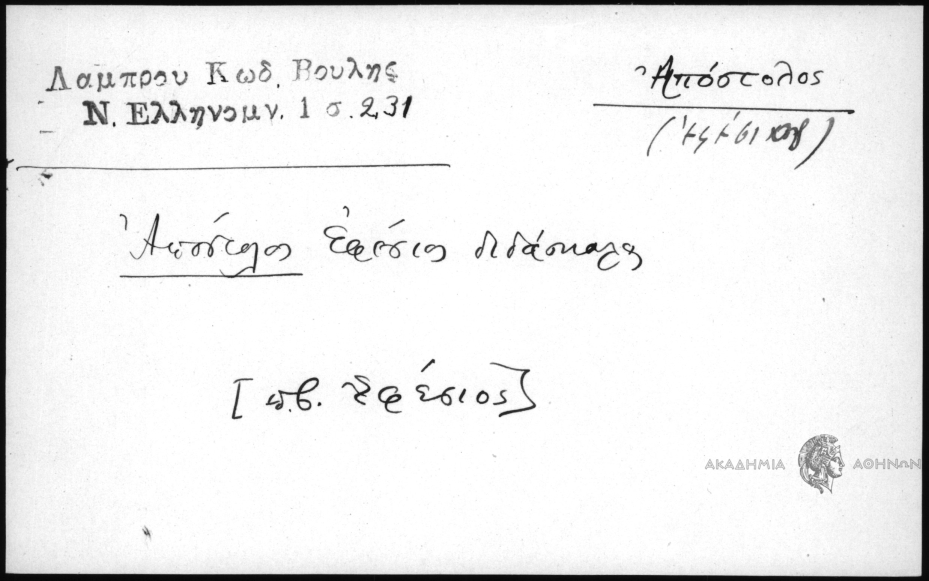 Λαμπρου Κωδ. Βουλης
Ν. Ελληνομν. 1 σ. 231
Ἀπόστολος
Ἀπόστολος Ἐφέσιος διδάσκαλος
[π.β. Ἐφέσιος]
ΑΚΑΔΗΜΙΑ ΑΘΗΝΩΝ